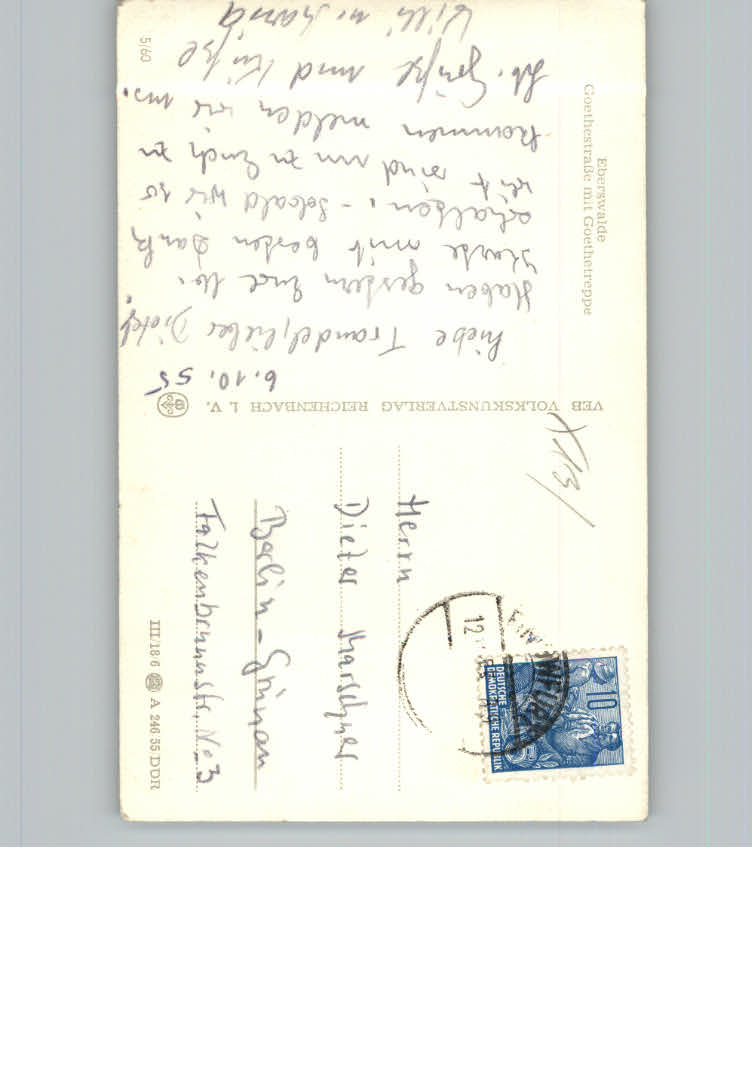 Eberswalde
Goethestraße mit Goethetreppe
5/60
6.10.55
Liebe Traudel, lieber Dieter,
Haben gestern Eure lb.
Karte mit besten Dank
erhalten. - Sobald wir so
weit sind um zu Euch zu
kommen melden wir uns.
Hb. Grüße und Küsse
Willi u.
VEB VOLKSKUNSTVERLAG REICHENBACH I. V.
Herrn
Dieter Marschner
Berlin-Grünau
Falkenbrunnstr. No 3
10
DEUTSCHE
DEMOKRATISCHE REPUBLIK
12
III/18 6 A 246 55 DDR